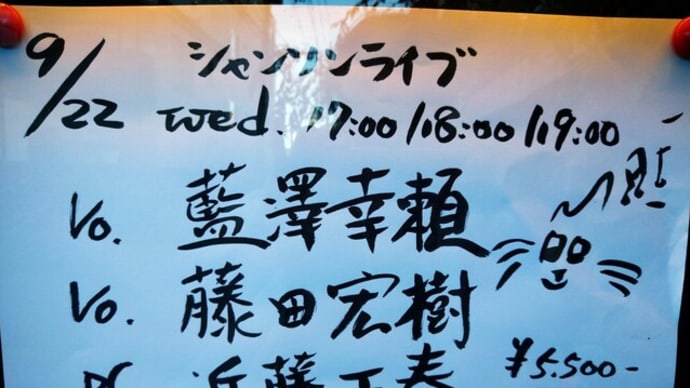 9/22 シャンソンライブ
wed. 17:00/18:00/19:00
Vo. 藍澤幸頼
Vo. 藤田宏樹
近藤正春
¥5.500-